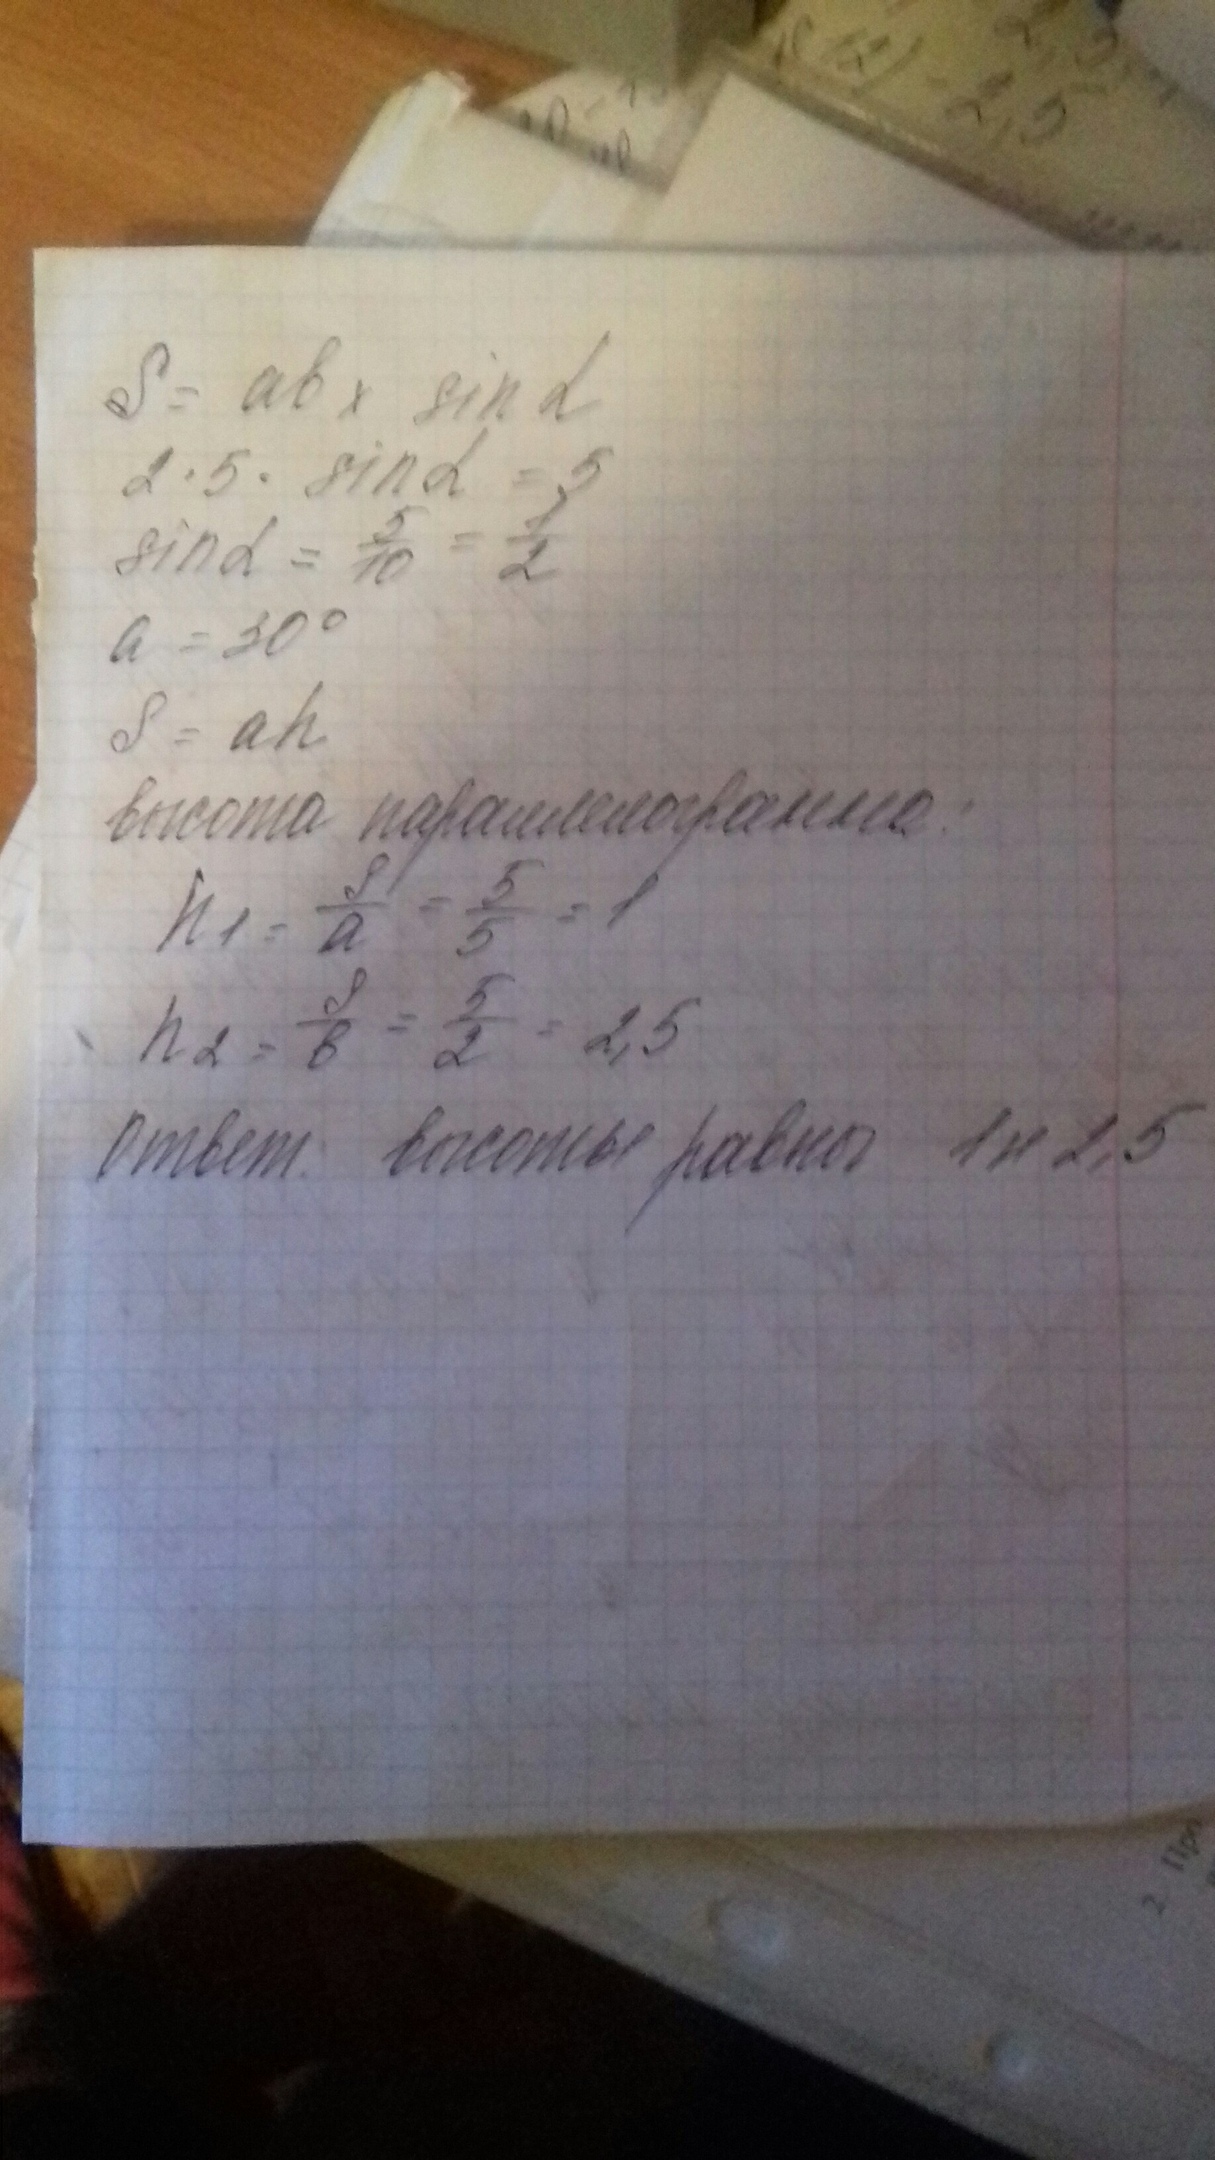 2,5
(2) - 2,5
S = ab x sin α
2·5· sin α = 5
sin α = 5/10 = 1/2
a = 30°
S = ah
высота параллелограмма:
h1 = S/a = 5/5 = 1
h2 = S/b = 5/2 = 2,5
Ответ: высоты равны 1 и 2,5
2 Про